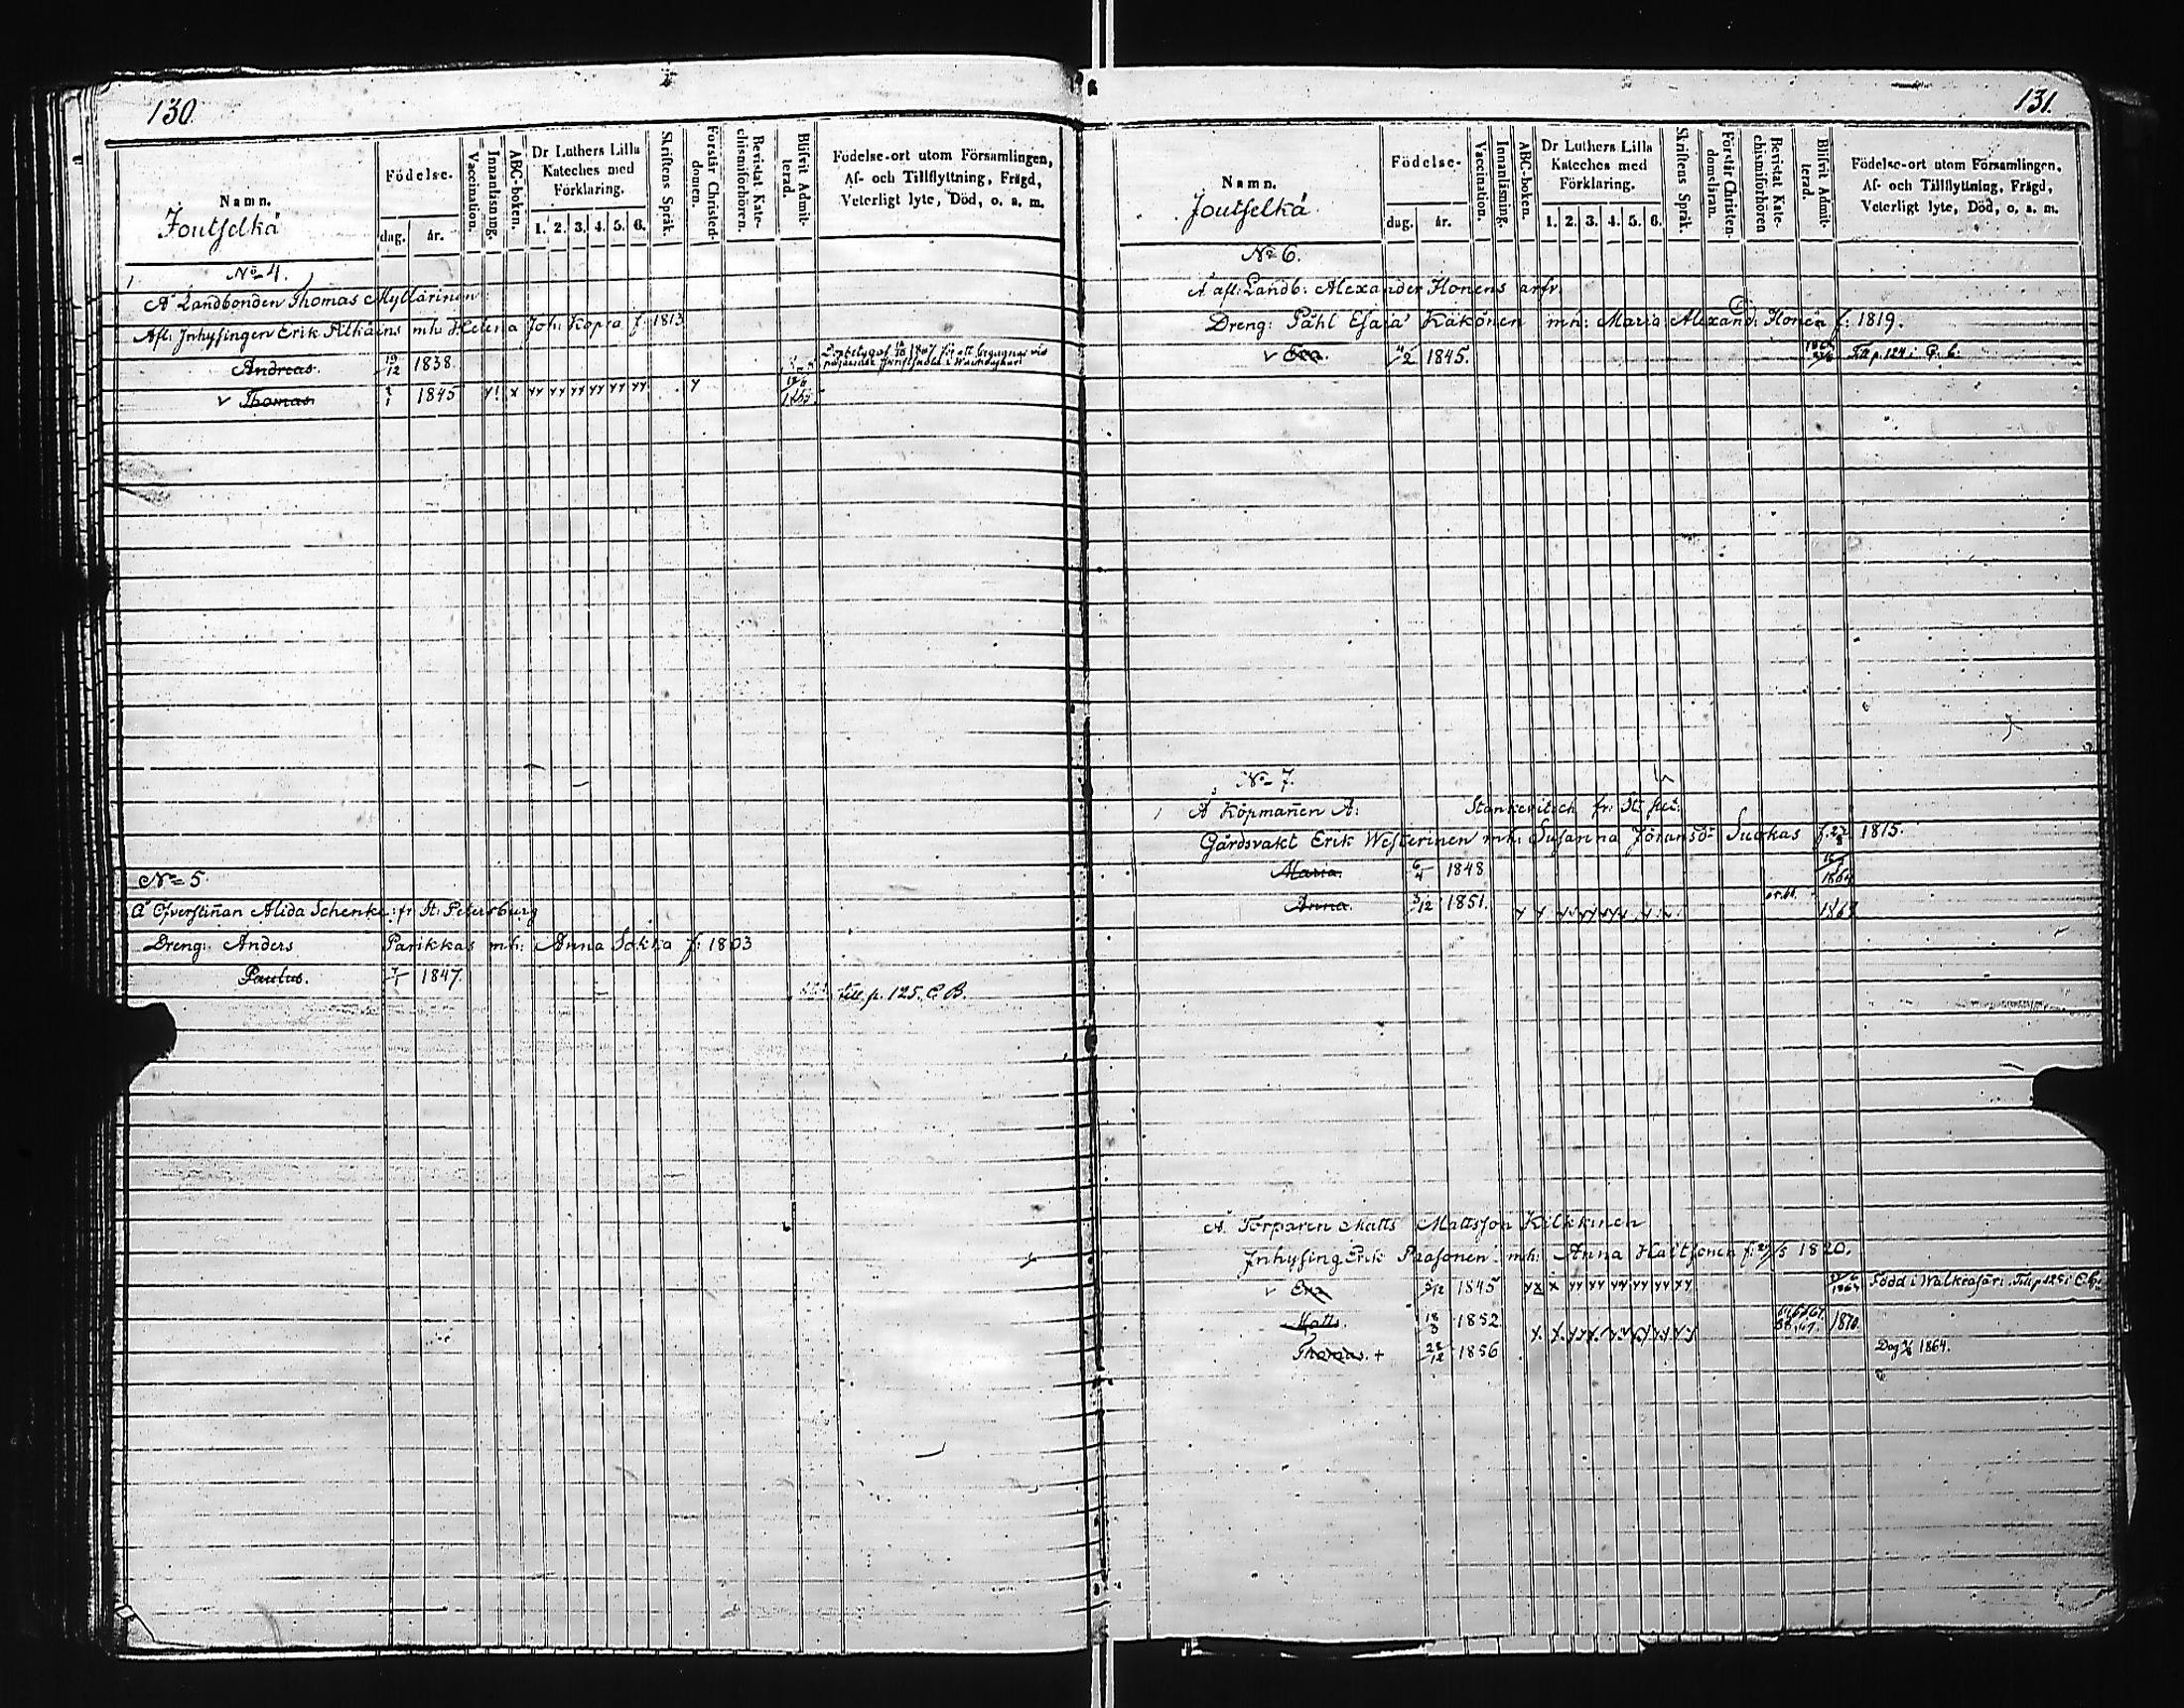 130
Namn.
Joutselkä
Födelse.
dag.
år.
Vaccination.
Innanläsning.
ABC-boken.
Dr Luthers Lilla
Kateches med
Förklaring.
1. 2. 3. 4. 5. 6.
Skriftens Språk.
Förstår Christen-
domen.
Bevistat Kate-
chismiförhören.
Blifvit Admit-
terad.
Födelse-ort utom Församlingen,
Af- och Tillflyttning, Frägd,
Veterligt lyte, Död, o. s. m.
No 4.
Å Landbonden Thomas Myllärinen
Afl: Inhysingen Erik mh: Helena Joh: Kopra f: 1813
Andreas. 1838.
v Thomas. 1845
No 5.
å Öfverstinnan Alida Schenke: fr St: Petersburg
Dreng: Anders Parikkas mh: Anna Sokka f: 1803
Paulus. 1847.
till p. 125. C. B.
131.
Namn.
Joutselkä
Födelse-
dag.
år.
Vaccination.
Innanläsning.
ABC-boken.
Dr Luthers Lilla
Kateches med
Förklaring.
1. 2. 3. 4. 5. 6.
Skriftens Språk.
Förstår Christen-
domsläran.
Bevistat Kate-
chismiförhören
Blifvit Admit-
terad.
Födelse-ort utom Församlingen,
Af- och Tillflyttning, Frägd,
Veterligt lyte, Död, o. s. m.
No 6.
Å afl: Landb: Alexander Ilonens arfv.
Dreng: Påhl Esaia Käkönen mh: Maria Alexand: Ilonen f: 1819.
v Eva. 1845. Till p. 124 i C. b.
No 7.
Å Köpmannen A: Stankevitsch fr: St: pet:
Gårdsvakt Erik Westerinen mh: Susanna Göransdr Suokas f. 27/8 1815.
Maria. 6/4 1848 1864
Anna. 3/12 1851.
Å Torparen Matts Mattsson Kilkkinen
Inhysing Erik Paasonen mh: Anna Haltsonen f: 27/5 1820.
v Eva 1845 Född i Walkeasari. Till p 125 i C. b.
Matts. 18/3 1852 1870
Thomas. + 28/12 1856 Dog 1864.